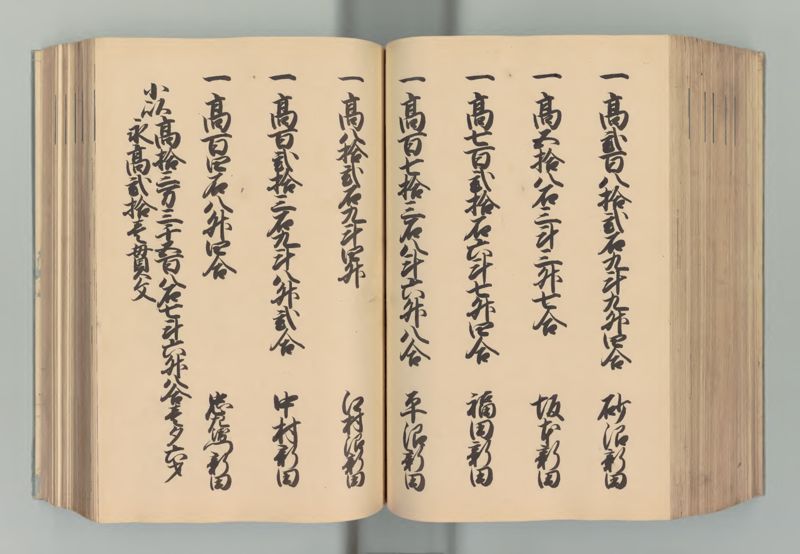 一 高弐百八拾弐石九斗九升四合 砂沼新田
一 高五拾八石三斗三升七合 坂本新田
一 高七百弐拾石六斗七升四合 福田新田
一 高百七拾三石八斗六升八合 平沼新田
一 高八拾弐石九斗四升 江村沼新田
一 高百弐拾三石九斗八升弐合 中村新田
一 高百四石八升四合 新田
小以 高拾三万三千五百八石七斗六升八合壱夕六才
永高弐拾壱貫八文